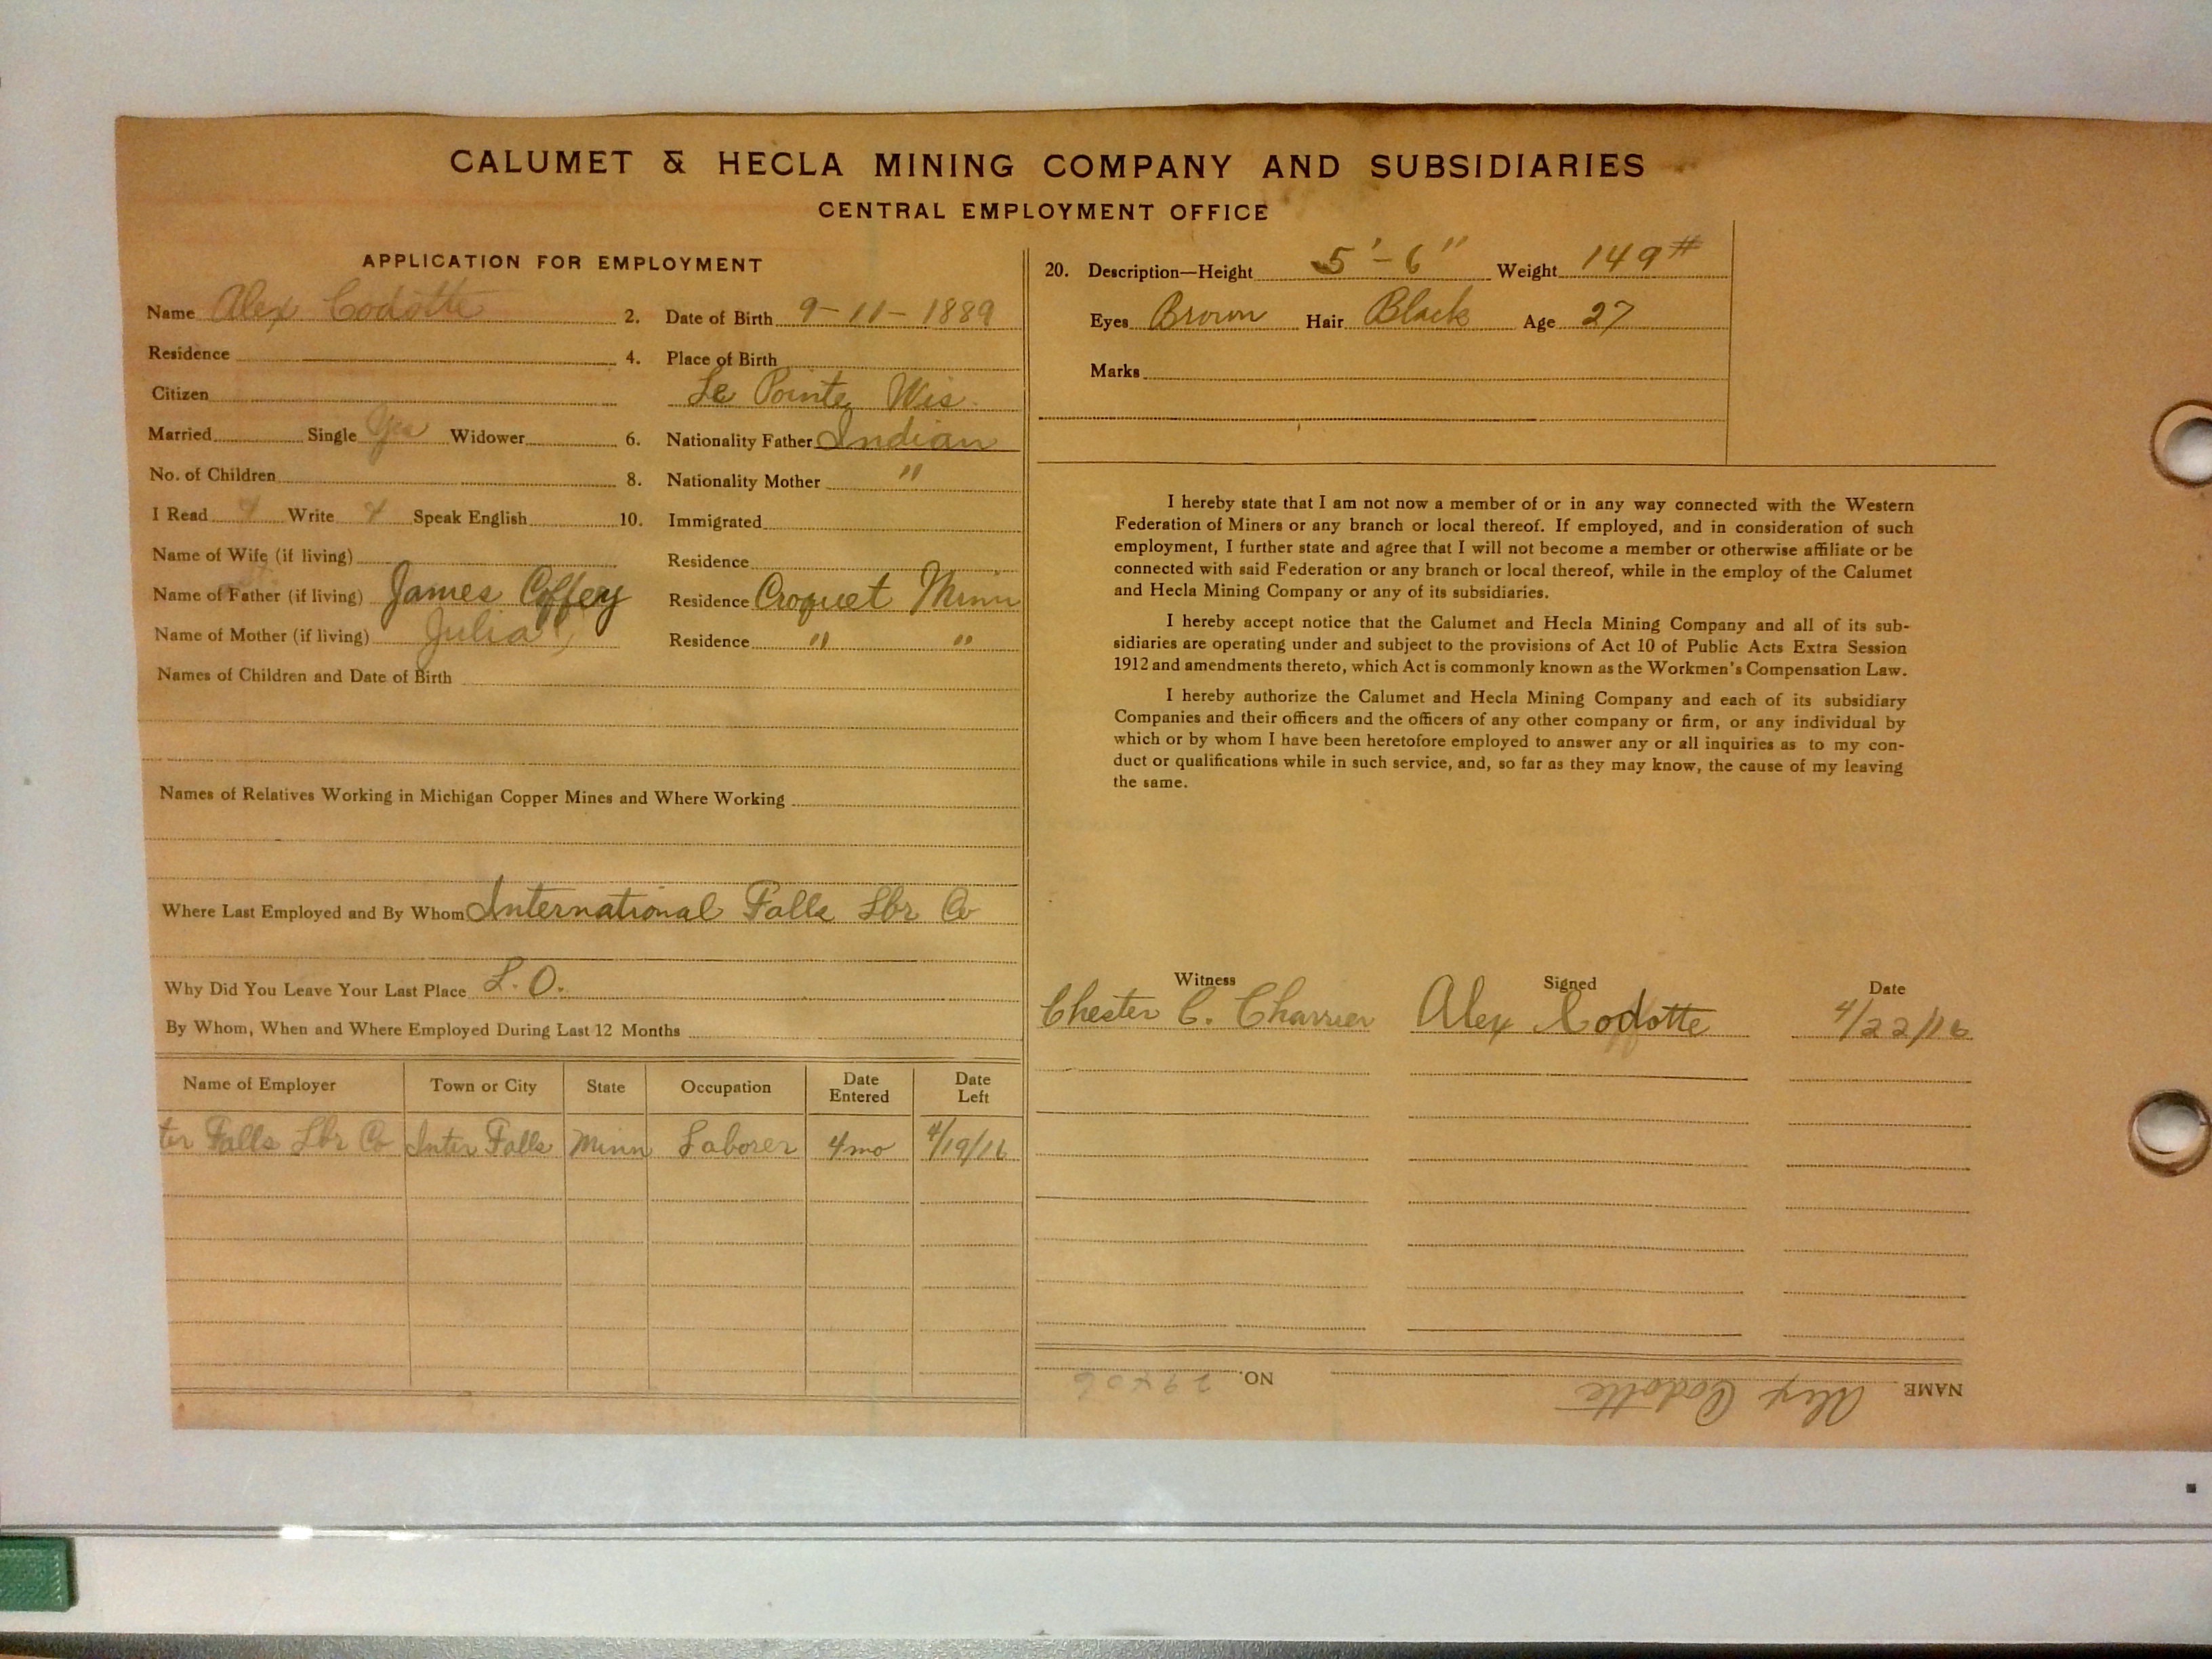 CALUMET & HECLA MINING COMPANY AND SUBSIDIARIES
CENTRAL EMPLOYMENT OFFICE
APPLICATION FOR EMPLOYMENT
Name Alex Codotte 2. Date of Birth 9-11-1889
Residence 4. Place of Birth
Citizen Le Pointe Wis.
Married Single Yes Widower 6. Nationality Father Indian
No. of Children 8. Nationality Mother "
I Read Write Speak English 10. Immigrated
Name of Wife (if living) Residence
Name of Father (if living) James Coffey Residence Croquet Minn
Name of Mother (if living) Julia Residence " "
Names of Children and Date of Birth
Names of Relatives Working in Michigan Copper Mines and Where Working
Where Last Employed and By Whom International Falls Lbr Co
Why Did You Leave Your Last Place L.O.
By Whom, When and Where Employed During Last 12 Months
Name of Employer Town or City State Occupation Date Entered Date Left
ter Falls Lbr Co Inter Falls Minn Laborer 4 mo 4/19/16
20. Description—Height 5'-6" Weight 149#
Eyes Brown Hair Black Age 27
Marks
I hereby state that I am not now a member of or in any way connected with the Western
Federation of Miners or any branch or local thereof. If employed, and in consideration of such
employment, I further state and agree that I will not become a member or otherwise affiliate or be
connected with said Federation or any branch or local thereof, while in the employ of the Calumet
and Hecla Mining Company or any of its subsidiaries.
I hereby accept notice that the Calumet and Hecla Mining Company and all of its sub-
sidiaries are operating under and subject to the provisions of Act 10 of Public Acts Extra Session
1912 and amendments thereto, which Act is commonly known as the Workmen's Compensation Law.
I hereby authorize the Calumet and Hecla Mining Company and each of its subsidiary
Companies and their officers and the officers of any other company or firm, or any individual by
which or by whom I have been heretofore employed to answer any or all inquiries as to my con-
duct or qualifications while in such service, and, so far as they may know, the cause of my leaving
the same.
Witness Signed Date
Chester C. Charrier Alex Codotte 4/22/16
NAME Alex Codotte NO.